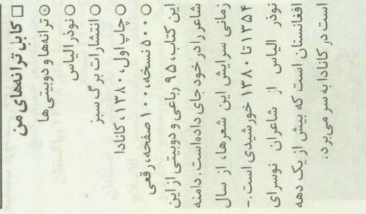 □ کابل ترانه‌های من
○ ترانه‌ها و دوبیتی‌ها
○ نوذر الیاس
○ انتشارات برگ سبز
○ چاپ اول، ۱۳۸۰، کانادا
○ ۵۰۰ نسخه، ۱۰۰ صفحه، رقعی
این کتاب، ۹۵ رباعی و دوبیتی از این
شاعر را در خود جای داده‌است. دامنه
زمانی سرایش این شعرها، از سال
۱۳۵۴ تا ۱۳۸۰ خورشیدی است.-
نوذر الیاس از شاعران نوسرای
افغانستان است که بیش از یک دهه
است در کانادا به سر می‌برد.